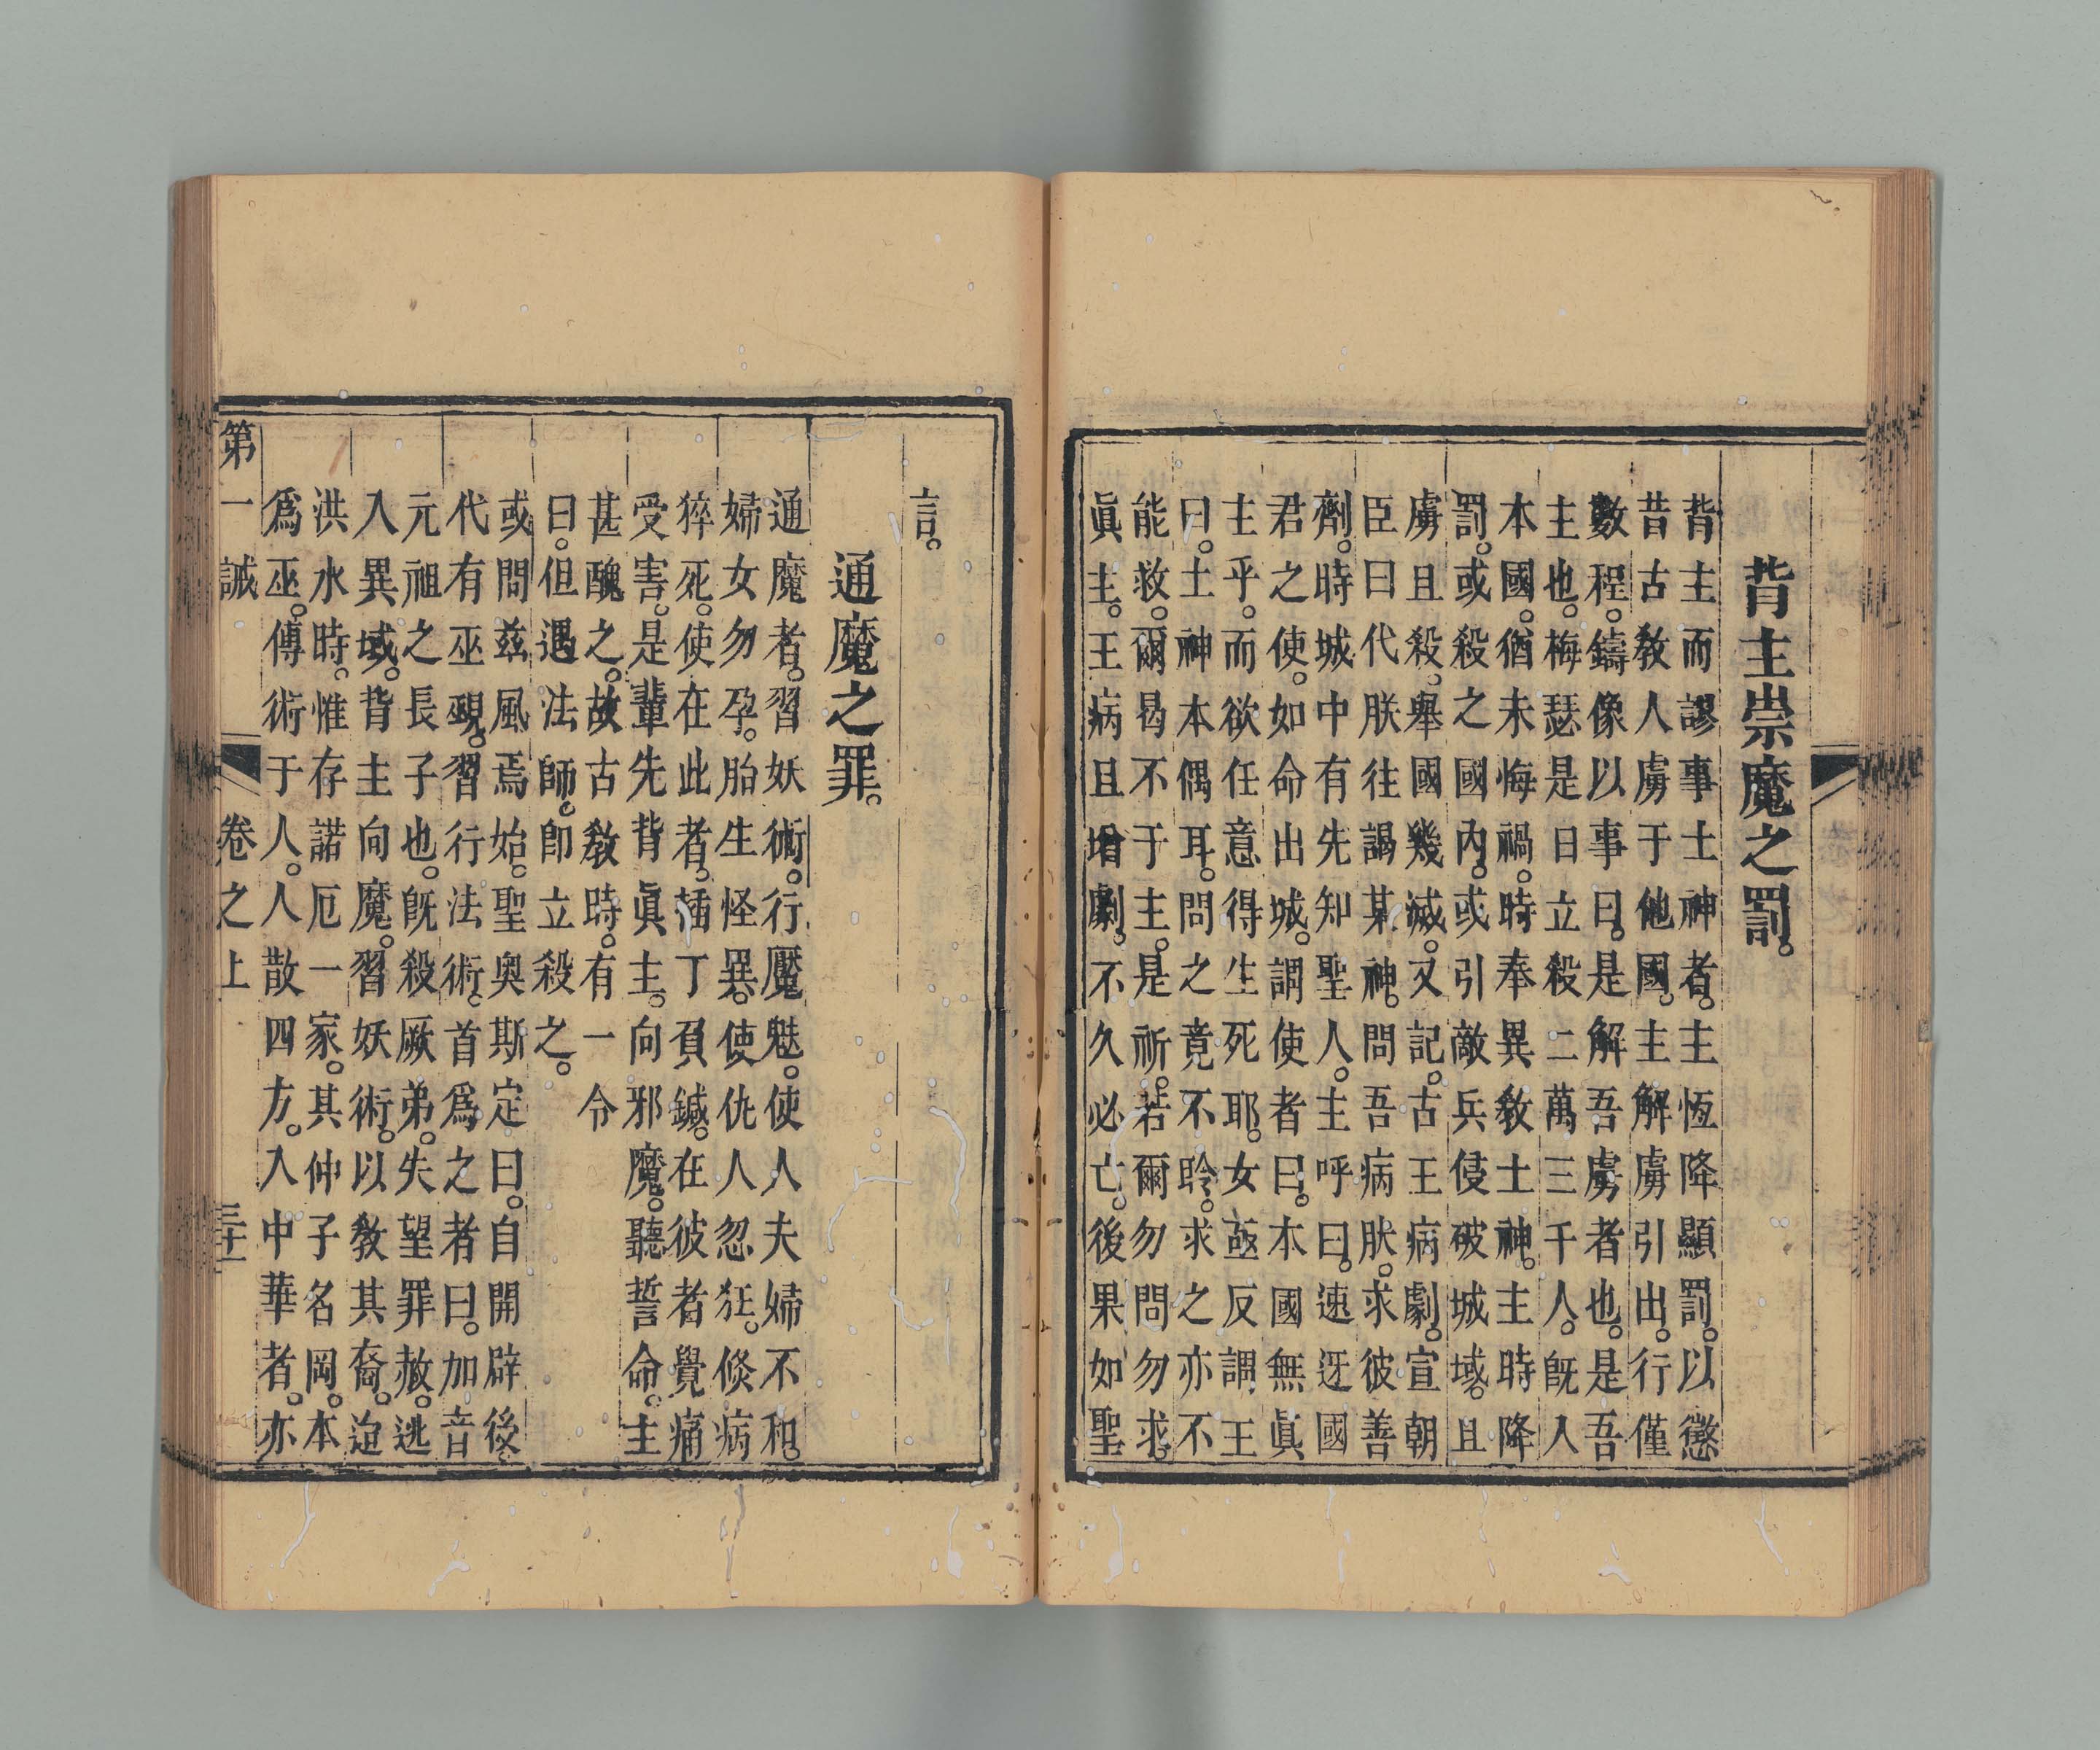 背主崇魔之罰。
背主而謬事土神者。主恆降顯罰。以懲
昔古教人虜于他國。主解虜引出。行僅
數程。鑄像以事曰。是解吾虜者也。是吾
主也。梅瑟是日立殺二萬三千人。旣入
本國。猶未悔禍。時奉異教土神。主時降
罰。或殺之國內。或引敵兵侵破城域。且
虜且殺。舉國幾滅。又記。古王病劇。宣朝
臣曰代朕往謁某神。問吾病朕。求彼善
劑。時城中有先知聖人。主呼曰。速迓國
君之使。如命出城。謂使者曰。本國無眞
主乎。而欲任意得生死耶。女亟反謂王
曰。土神本偶耳。問之竟不聆。求之亦不
能救。爾曷不于主。是祈。若爾勿問勿求。
眞主。王病且增劇。不久必亡。後果如聖
言。
通魔之罪。
通魔者。習妖術。行魘魅。使人夫婦不和。
婦女勿孕。胎生怪異。使仇人忽狂。倐病
猝死。使在此者。插丁頁鍼。在彼者覺痛
受害。是輩先背眞主。向邪魔。聽誓命。主
甚醜之。故古教時。有一令
曰。但遇法師。卽立殺之。
或問茲風焉始。聖奥斯定曰。自開辟後。
代有巫覡。習行法術。首爲之者曰。加音
元祖之長子也。旣殺厥弟。失望罪赦。逃
入異域。背主向魔。習妖術。以敎其裔。迨
洪水時。惟存諾厄一家。其仲子名岡。本
爲巫。傳術于人。人散四方。入中華者。亦
第一誡 卷之上 三十一